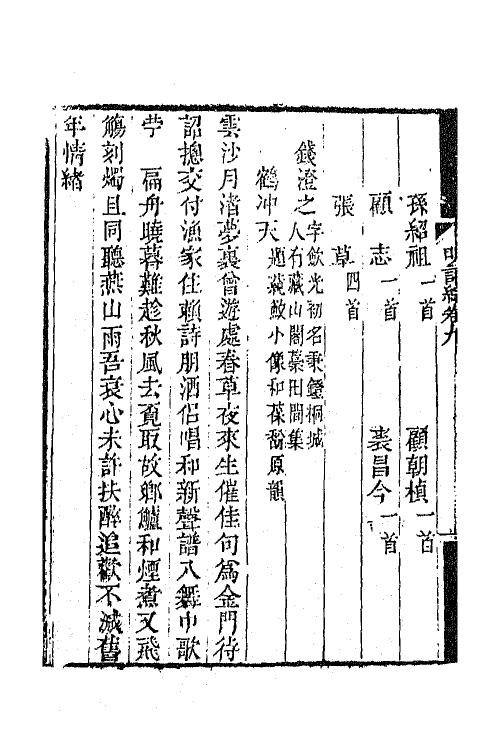 明詞綜卷九
孫紹祖一首　顧朝楨一首
顧志一首　裘昌今一首
張草四首
錢澄之字飲光初名秉鐙桐城人有藏山閣藁田間集
鶴冲天題蓑敂小像和葆馚原韻
雲沙月渚夢裏曾遊處春草夜來生催佳句爲金門待
詔摠交付漁家住賴詩朋酒侶唱和新聲譜入舞巾歌
苧　扁舟曉暮難趁秋風去覔取故鄉鱸和煙煮又飛
觴刻燭且同聽燕山雨吾衰心未許扶醉追歡不減舊
年情緒